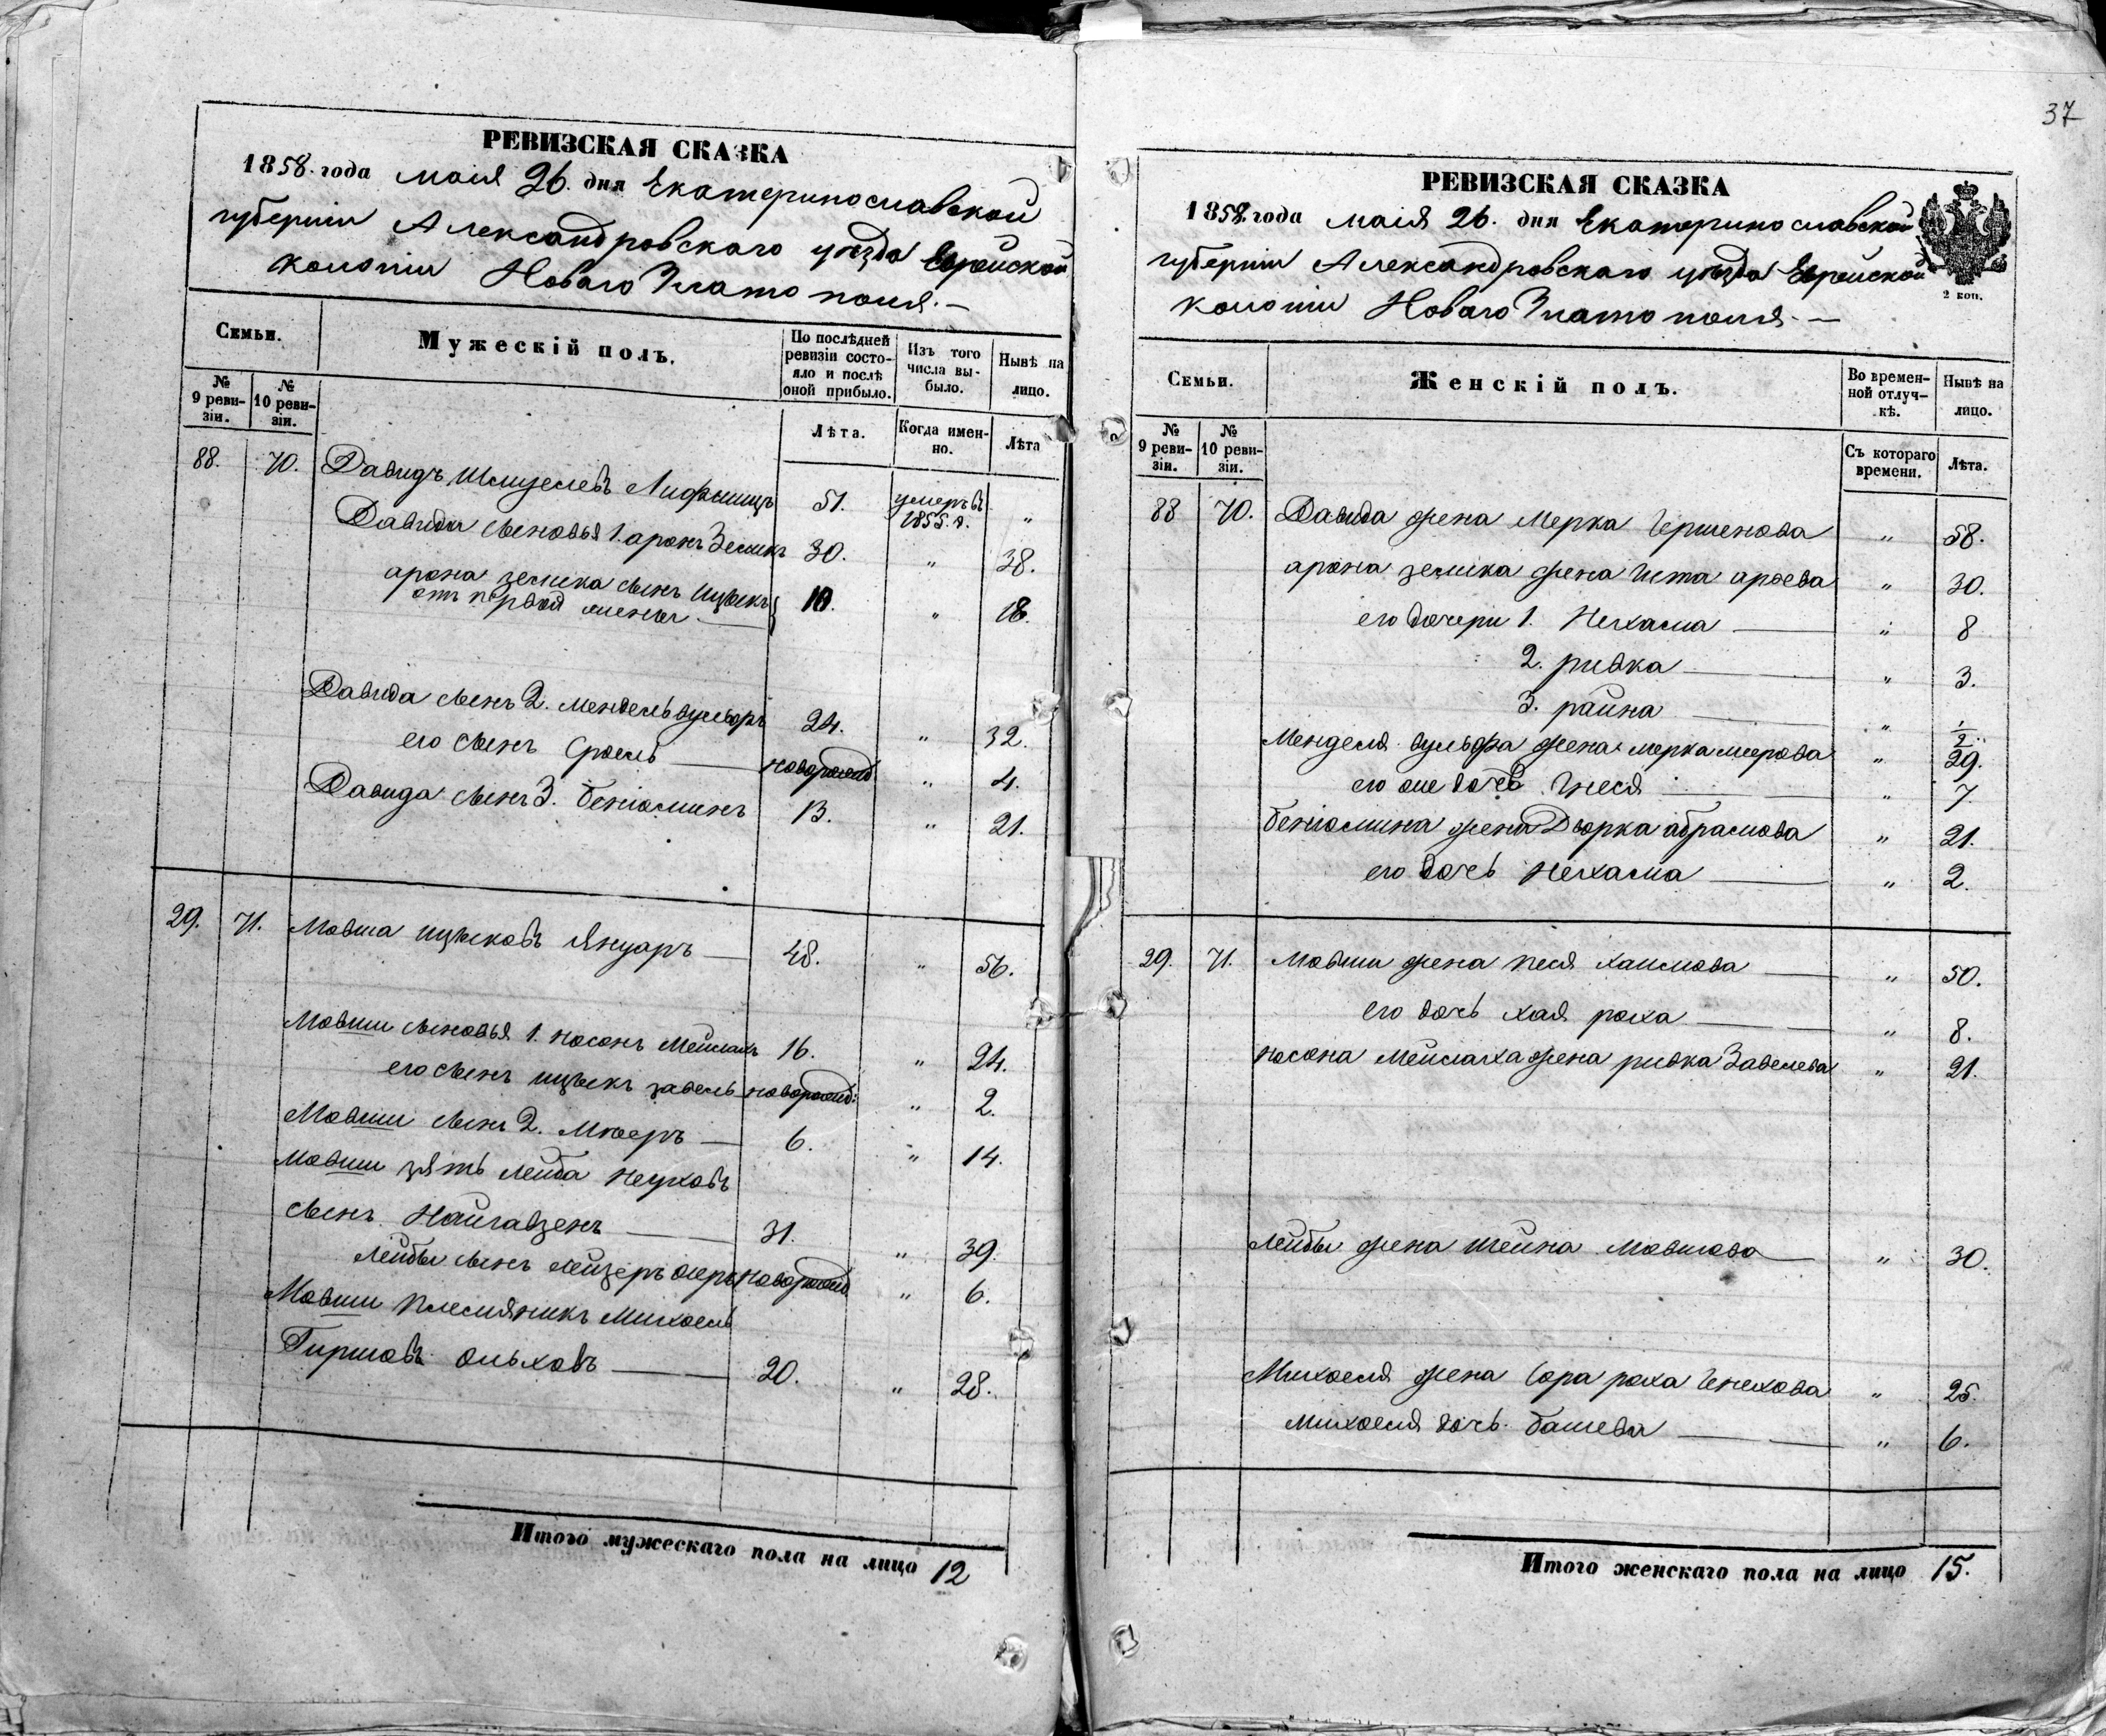 37
РЕВИЗСКАЯ СКАЗКА
1858. года маія 26. дня Екатеринославской
губерніи Александровскаго уѣзда Еврейской
колоніи Новаго Златополя. —
Семьи.
Мужескій полъ.
По послѣдней ревизіи состояло и послѣ оной прибыло.
Изъ того числа выбыло.
Нынѣ на лицо.
№ 9 ревизіи.
№ 10 ревизіи.
Лѣта.
Когда именно.
Лѣта
88. 70. Давидъ Шмуелевъ Лифшицъ 51. умеръ въ 1855. г. "
Давида сыновья 1. аронъ Зеликъ 30. " 38.
арона зелика сынъ Ицыкъ
отъ первой жены — 10. " 18.
Давида сынъ 2. Мендель вульфъ 24. " 32.
его сынъ Сроель — новорожд " 4.
Давида сынъ 3. беніоминъ 13. " 21.
29. 71. Мовша ицыковъ Януаръ — 48. " 56.
Мовши сыновья 1. носонъ Мейлахъ 16. " 24.
его сынъ ицыкъ завель новорожд: " 2.
Мовши сынъ 2. Мееръ — 6. " 14.
Мовши зять лейба
сынъ — 31. " 39.
лейбы сынъ лейзеръ новорожд " 6.
Мовши племяникъ Михоель
Гиршовъ Ольховъ — 20. " 28.
Итого мужескаго пола на лицо 12
РЕВИЗСКАЯ СКАЗКА
1858 года маія 26. дня Екатеринославской
губерніи Александровскаго уѣзда Еврейской
колоніи Новаго Златополя. —
2 коп.
Семьи.
Женскій полъ.
Во временной отлучкѣ.
Нынѣ на лицо.
№ 9 ревизіи.
№ 10 ревизіи.
Съ котораго времени.
Лѣта.
88 70. Давида жена Мерка Гершенова " 58.
арона зелика жена Ита " 30.
его дочери 1. Нехама — " 8
2. ривка — " 3.
3. райна — " 1/2
Менделя вульфа жена мерка меерова " 29.
его же дочь Гнеся — " 7.
беніомина жена Дворка абрамова " 21.
его дочь Нехама — " 2.
29. 71. Мовши жена песя хаимова — " 50.
его дочь хая роха — " 8.
носона мейлаха жена ривка Завелева " 21.
лейбы жена шейна Мовшова — " 30.
Михоеля жена Сора роха Генехова " 25.
михоеля дочь башева — " 6.
Итого женскаго пола на лицо 15.